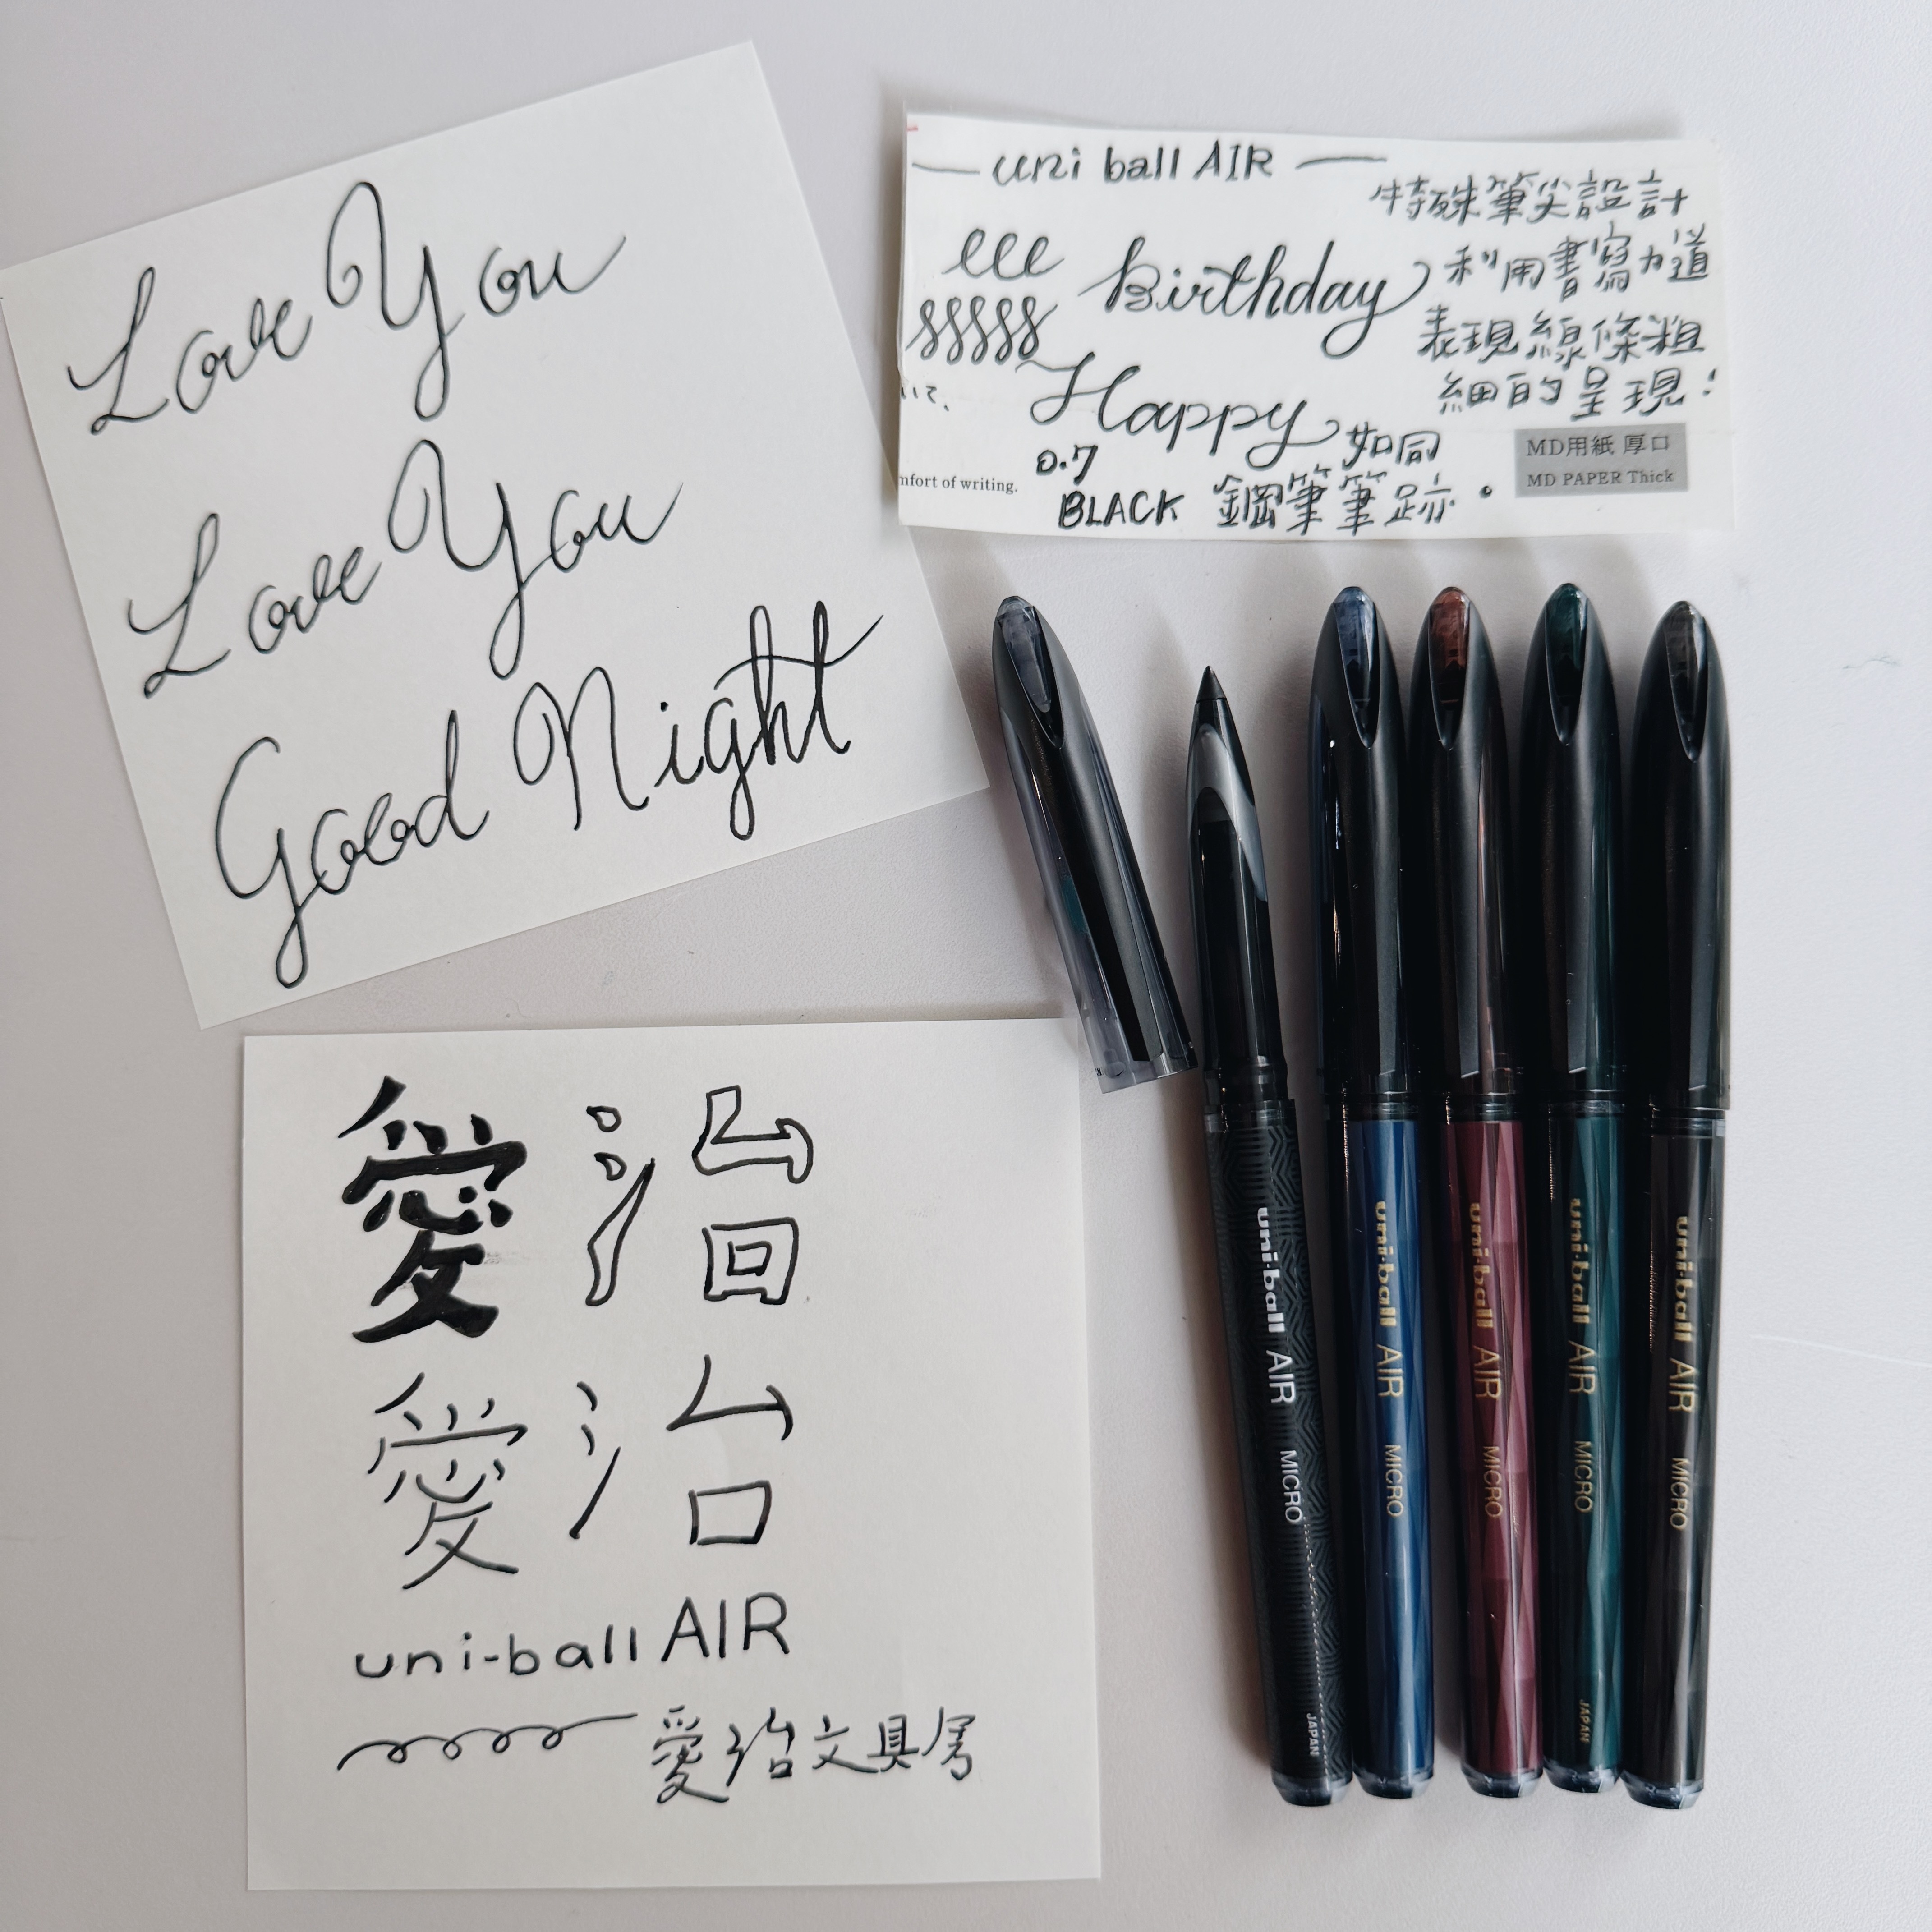 Love You
Love You
Good Night
uni ball AIR
特殊筆尖設計
利用書寫力道
表現線條粗
細的呈現!
Birthday
Happy
いて、
0.7
如同
BLACK 鋼筆筆跡。
mfort of writing.
MD用紙 厚口
MD PAPER Thick
愛治
愛治
uni-ball AIR
愛治文具房
uni-ball AIR MICRO JAPAN
uni-ball AIR MICRO
uni-ball AIR MICRO
uni-ball AIR MICRO JAPAN
uni-ball AIR MICRO